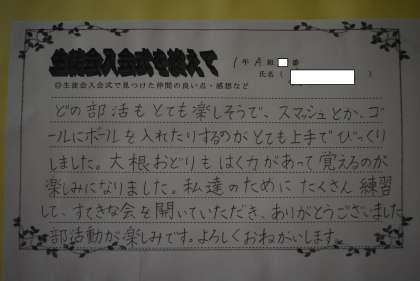 生徒会入会式を終えて
1年 A組 番
氏名( )
◎生徒会入会式で見つけた仲間の良い点・感想など
どの部活もとても楽しそうで、スマッシュとか、ゴ
ールにボールを入れたりするのがとても上手でびっくり
しました。大根おどりもはく力があって覚えるのが
楽しみになりました。私達のためにたくさん練習
して、すてきな会を開いていただき、ありがとうございました
部活動が楽しみです。よろしくおねがいします。